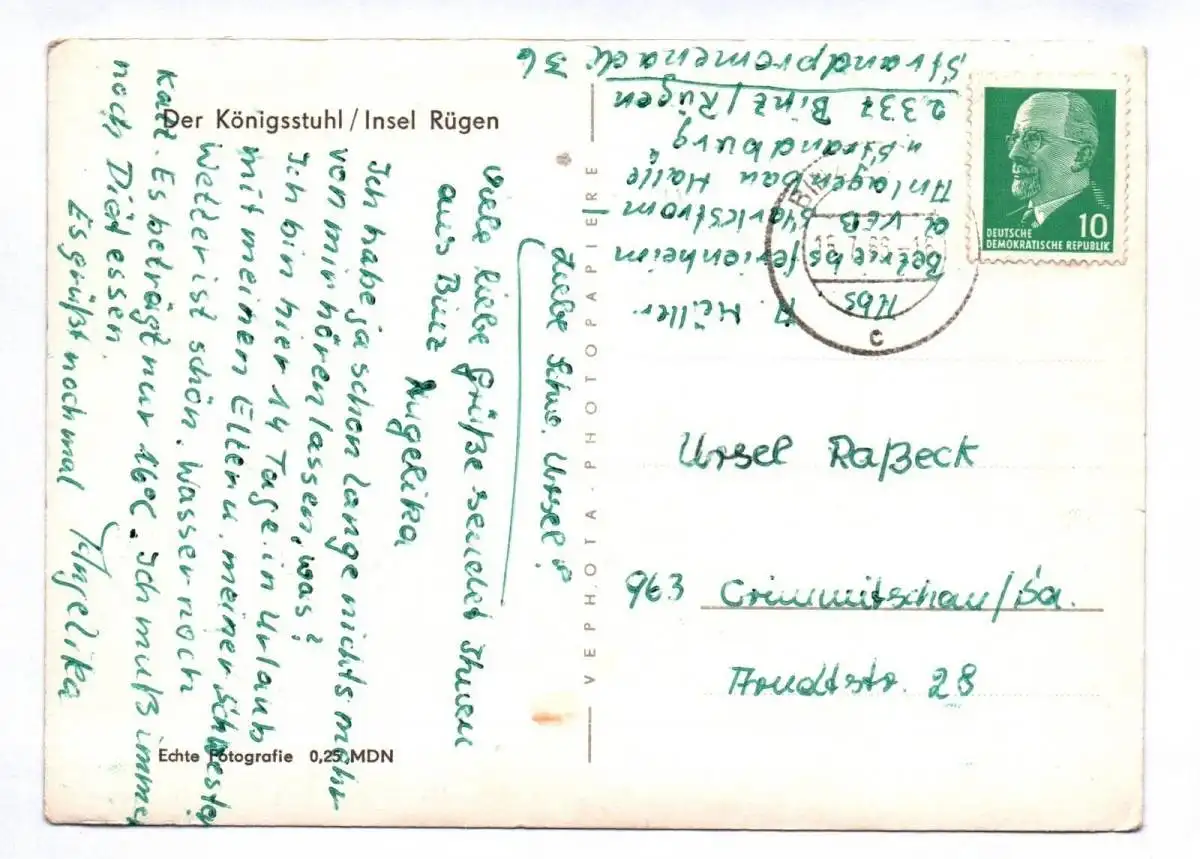 Der Königsstuhl / Insel Rügen
Liebe Schw. Ursel!
Viele liebe Grüße sendet Ihnen
aus Binz
Angelika
Ich habe ja schon lange nichts mehr
von mir hören lassen, was?
Ich bin hier 14 Tage in Urlaub
mit meinen Eltern u. meiner Schwester
Wetter ist schön. Wasser noch
kalt. Es beträgt nur 16°C. Ich muß immer
noch Diät essen.
Es grüßt nochmal Angelika
Echte Fotografie 0,25 MDN
VEPHOTA-PHOTOPAPIERE
A. Müller
Abs
Betriebsferienheim
d VEB Starkstrom-
Anlagenbau Halle
u Strandburg
2337 Binz/Rügen
Strandpromenade 36
10
DEUTSCHE
DEMOKRATISCHE REPUBLIK
c
Ursel Raßeck
963 Crimmitschau/Sa.
Arndtstr. 28